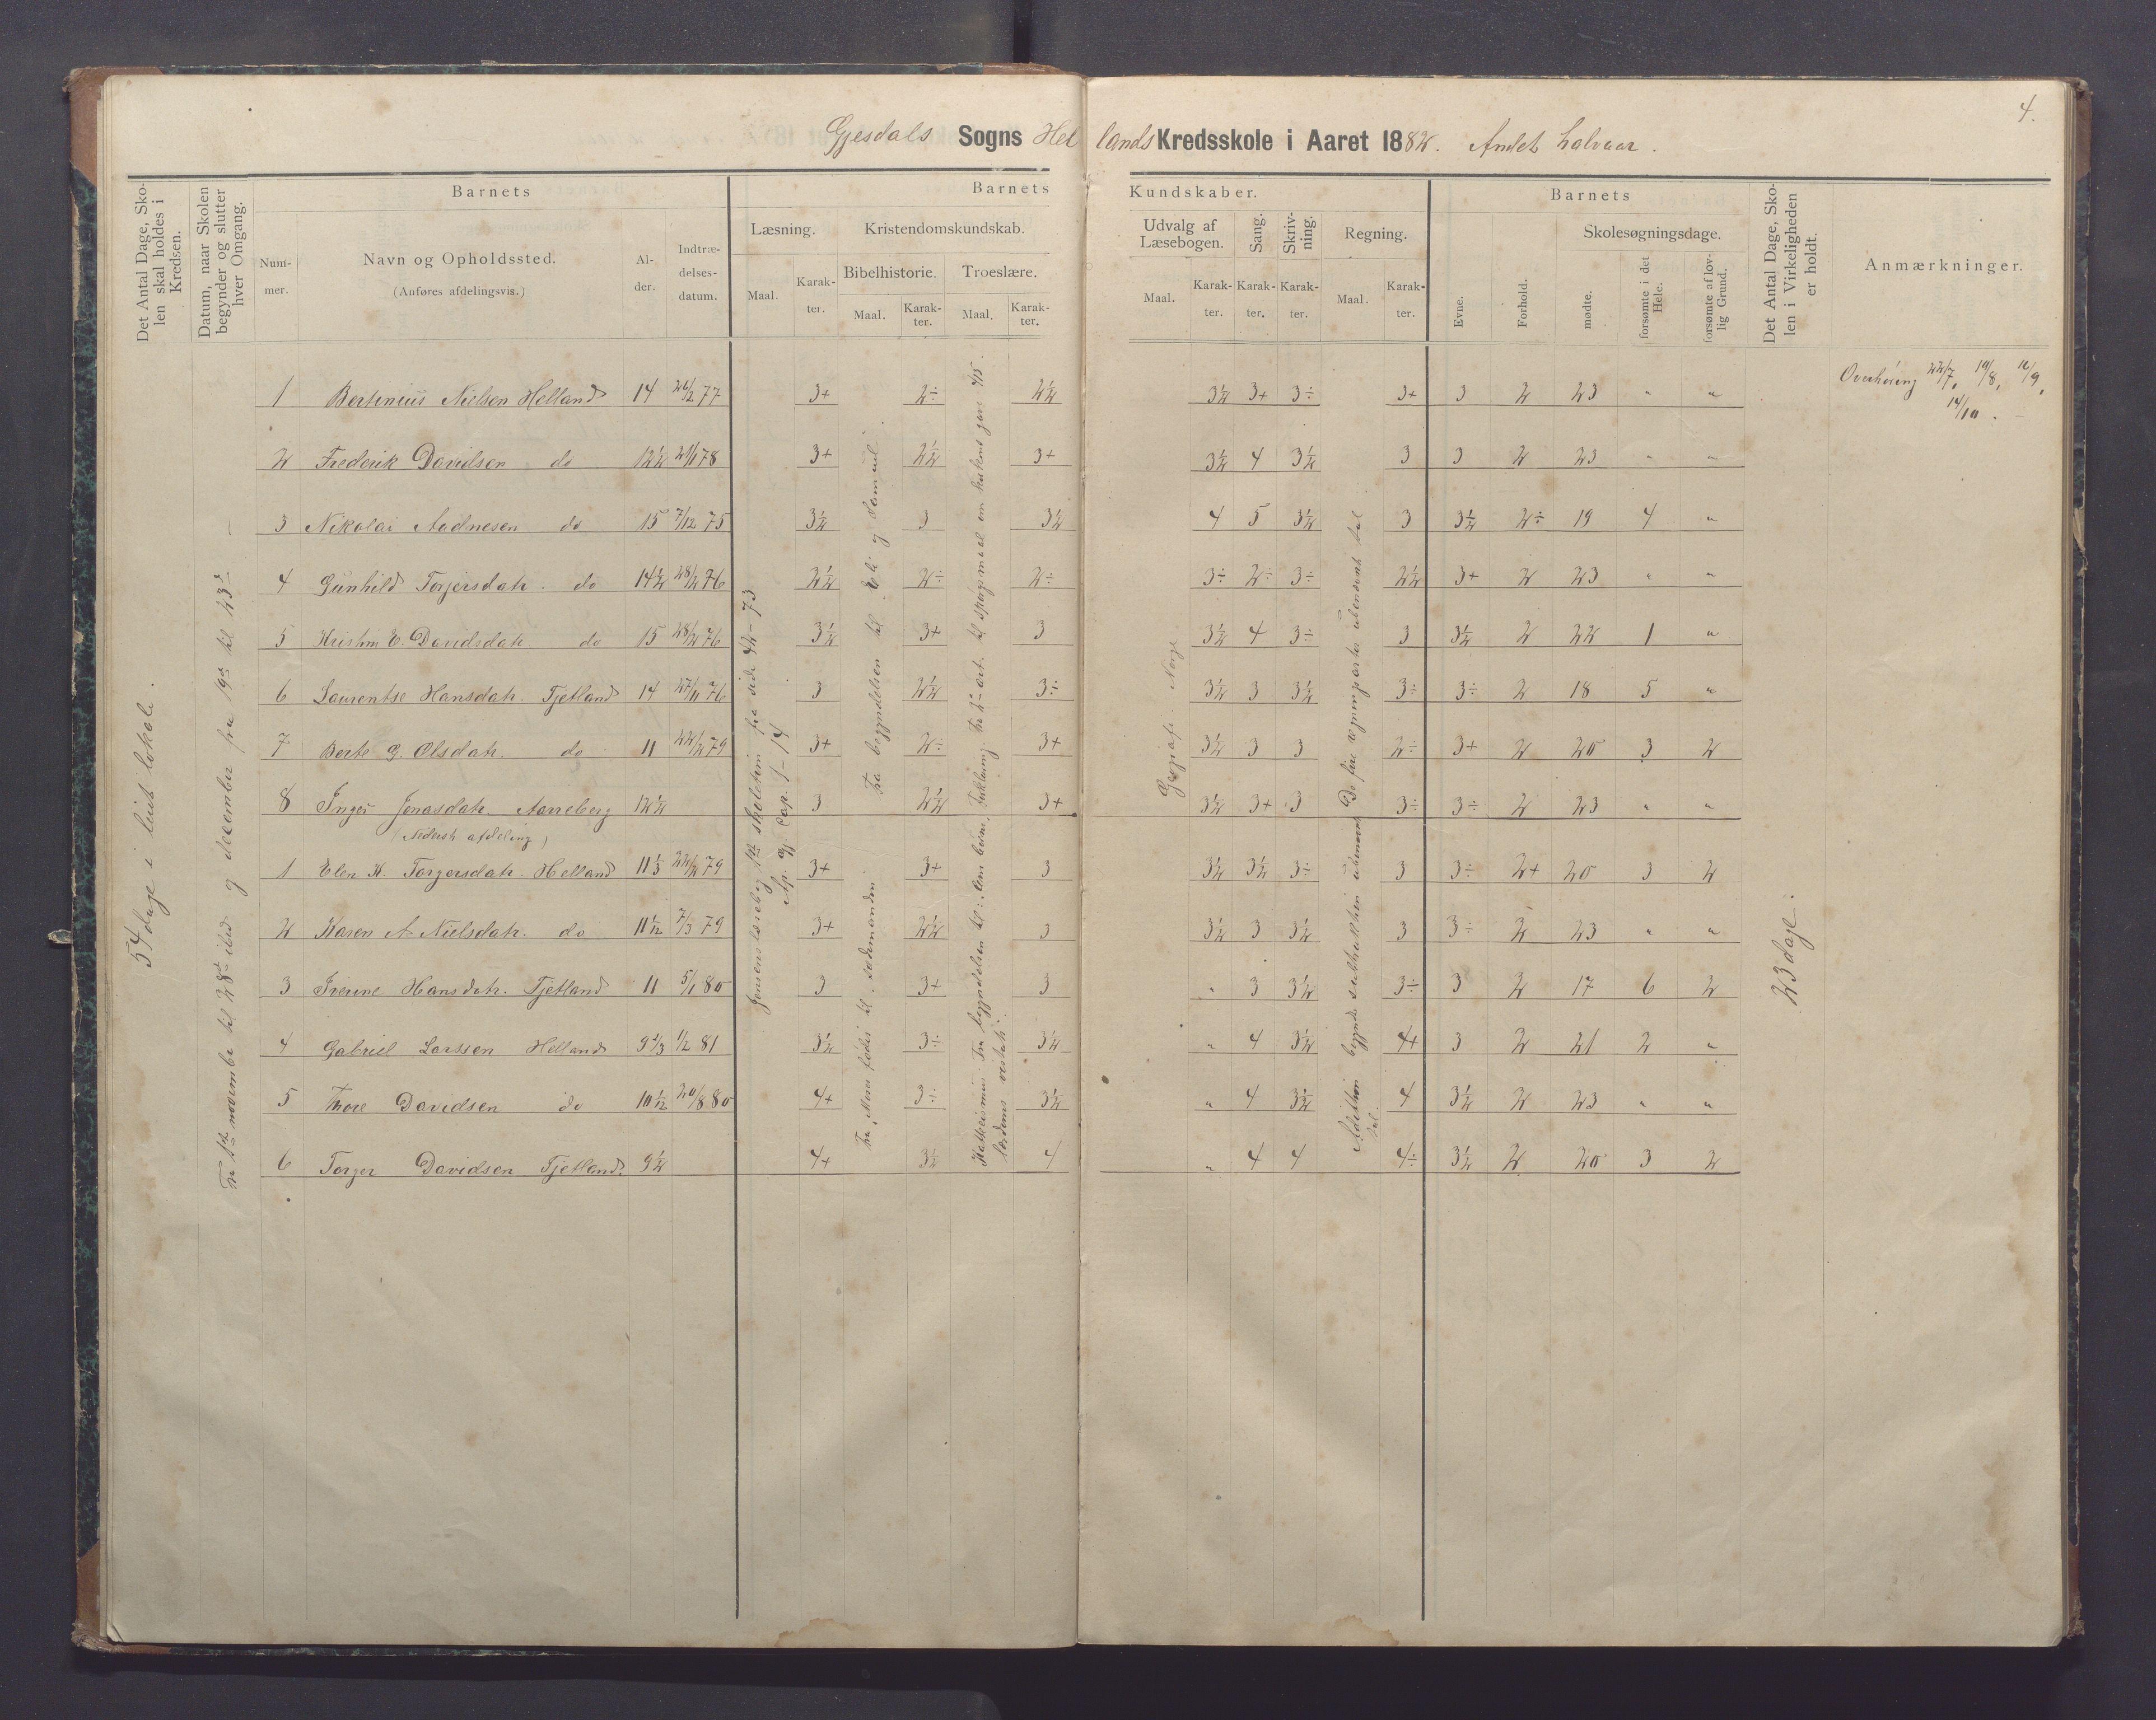 4.
Gjesdals Sogns Hel lands Kredsskole i Aaret 1882. Andet halvaar.
Det Antal Dage, Sko-
len skal holdes i
Kredsen.
Datum, naar Skolen
begynder og slutter
hver Omgang.
Barnets
Num-
mer.
Navn og Opholdssted.
(Anføres afdelingsvis.)
Al-
der.
Indtræ-
delses-
datum.
Barnets Kundskaber.
Læsning.
Maal.
Karak-
ter.
Kristendomskundskab.
Bibelhistorie.
Maal.
Karak-
ter.
Troeslære.
Maal.
Karak-
ter.
Udvalg af
Læsebogen.
Maal.
Karak-
ter.
Sang.
Karak-
ter.
Skriv-
ning.
Karak-
ter.
Regning.
Maal.
Karak-
ter.
Barnets
Evne.
Forhold.
Skolesøgningsdage.
mødte.
forsømte i det
Hele.
forsømte af lov-
lig Grund.
Det Antal Dage, Sko-
len i Virkeligheden
er holdt.
Anmærkninger.
54 dage i leiet lokale.
Fra 1ste november til 28de ibid og december fra 19de til 23de
1 Bertinius Nielsen Helland 14 26/2 77 3+ 2÷ 2½ 3½ 3+ 3÷ 3+ 3 2 23 " "
Overhøring 22/7, 19/8, 16/9,
14/10.
2 Frederik Davidsen do 12½ 78 3+ 2½ 3+ 3½ 4 3½ 3 3 2 23 " "
3 Nikolai Aadnesen do 15 7/12 75 3½ 3 3½ 4 5 3½ 3 3½ 2÷ 19 4 "
4 Gunhild Torjersdatr. do 14½ 28/2 76 2½ 2÷ 2÷ 3÷ 2÷ 3÷ 2½ 3+ 2 23 " "
5 E. Davidsdatr do 15 28/2 76 3½ 3+ 3 3½ 4 3÷ 3 3½ 2 22 1 "
6 Laurentse Hansdatr. Tjetland 14 27/11 76 3 2½ 3÷ 3½ 3 3½ 3÷ 3÷ 2 18 5 "
7 Berte G. Olsdatr. do 11 22/2 79 3+ 2÷ 3+ 3½ 3 3 2÷ 3+ 2 20 3 2
8 Inger Jonasdatr. 12½ 3 2½ 3+ 3½ 3+ 3 3÷ 3÷ 2 23 " "
(Nederste afdeling)
1 Elen K. Torgersdatr. Helland 11⅓ 22/2 79 3+ 3+ 3 3½ 3½ 3÷ 3 3÷ 2+ 20 3 2
2 Karen A Nielsdatr. do 7/3 79 3+ 2½ 3 3½ 3 3½ 3 3÷ 2 23 " "
3 Hansdatr. Tjetland 11 5/1 80 3 3+ 3 " 3 3½ 3÷ 3 2 17 6 2
4 Gabriel Larssen Helland 9⅔ 1/2 81 3½ 3÷ 3½ " 4 3½ 4+ 3 2 21 2 "
5 Thore Davidsen do 20/8 80 4+ 3÷ 3½ " 4 3½ 4 3½ 2 23 " "
6 Torger Davidsen Tjetland 9½ 4+ 3½ 4 " 4 4 4÷ 3½ 2 20 3 2
Jensens læsebog 1ste skoletrin fra side 42–73
Ap. gj. Cap. 1–14
Fra begyndelsen til: Eli og Samuel.
Fra Mose fødes til:
Geografi: Norge
23 dage.